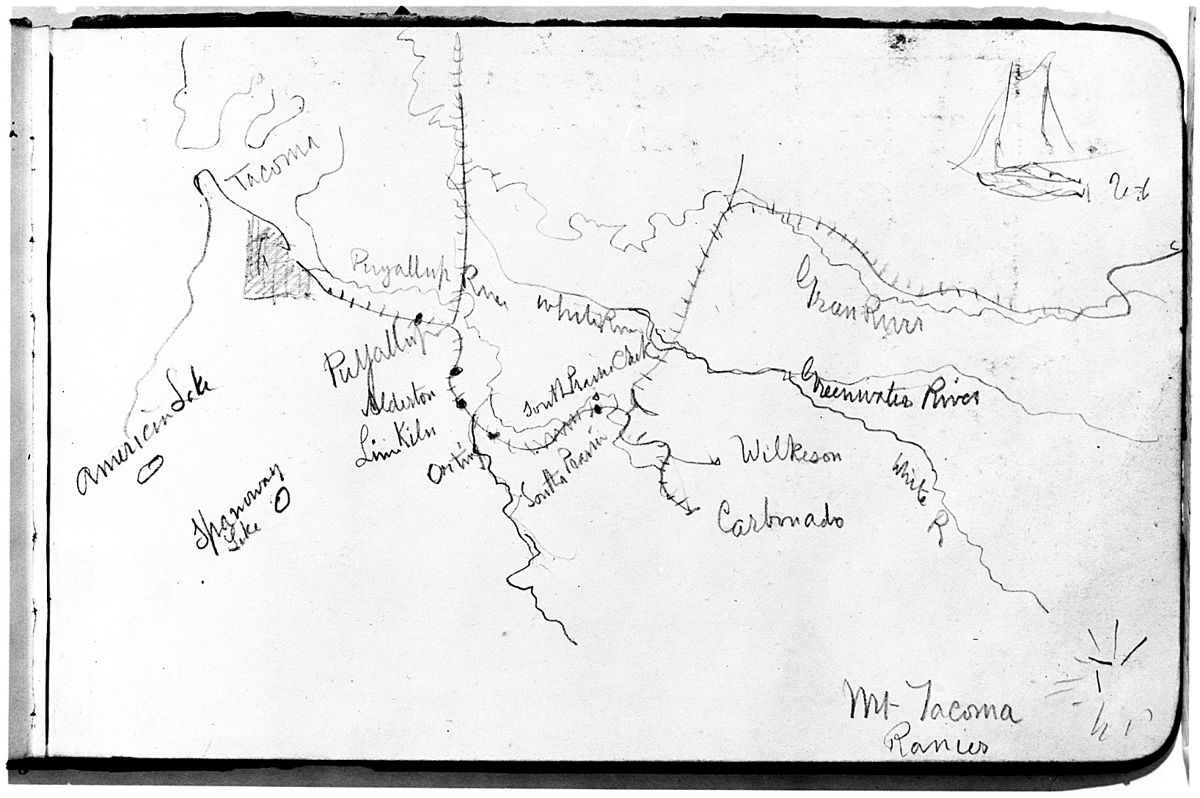 Tacoma
Puyallup River
White River
Grean River
Puyallup
Alderton
Lime Kiln
Orting
South Prairie Creek
South Prairie
Greenwater River
American Lake
Spanoway
Lake
Wilkeson
Carbonado
White R
Mt Tacoma
Ranier